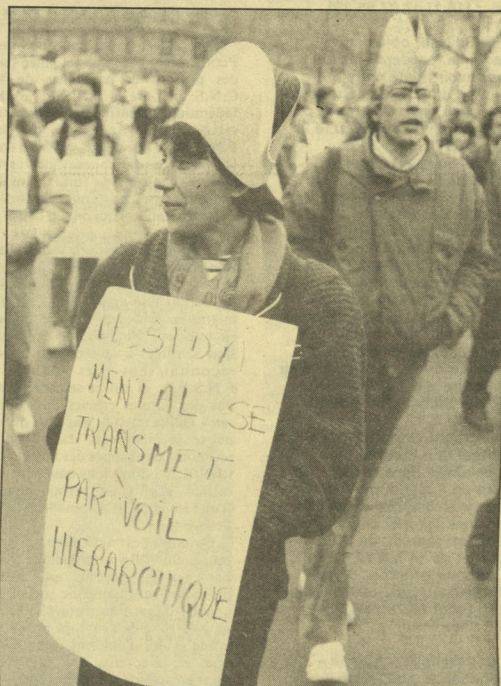 LE SIDA
MENTAL SE
TRANSMET
PAR VOIE
HIERARCHIQUE